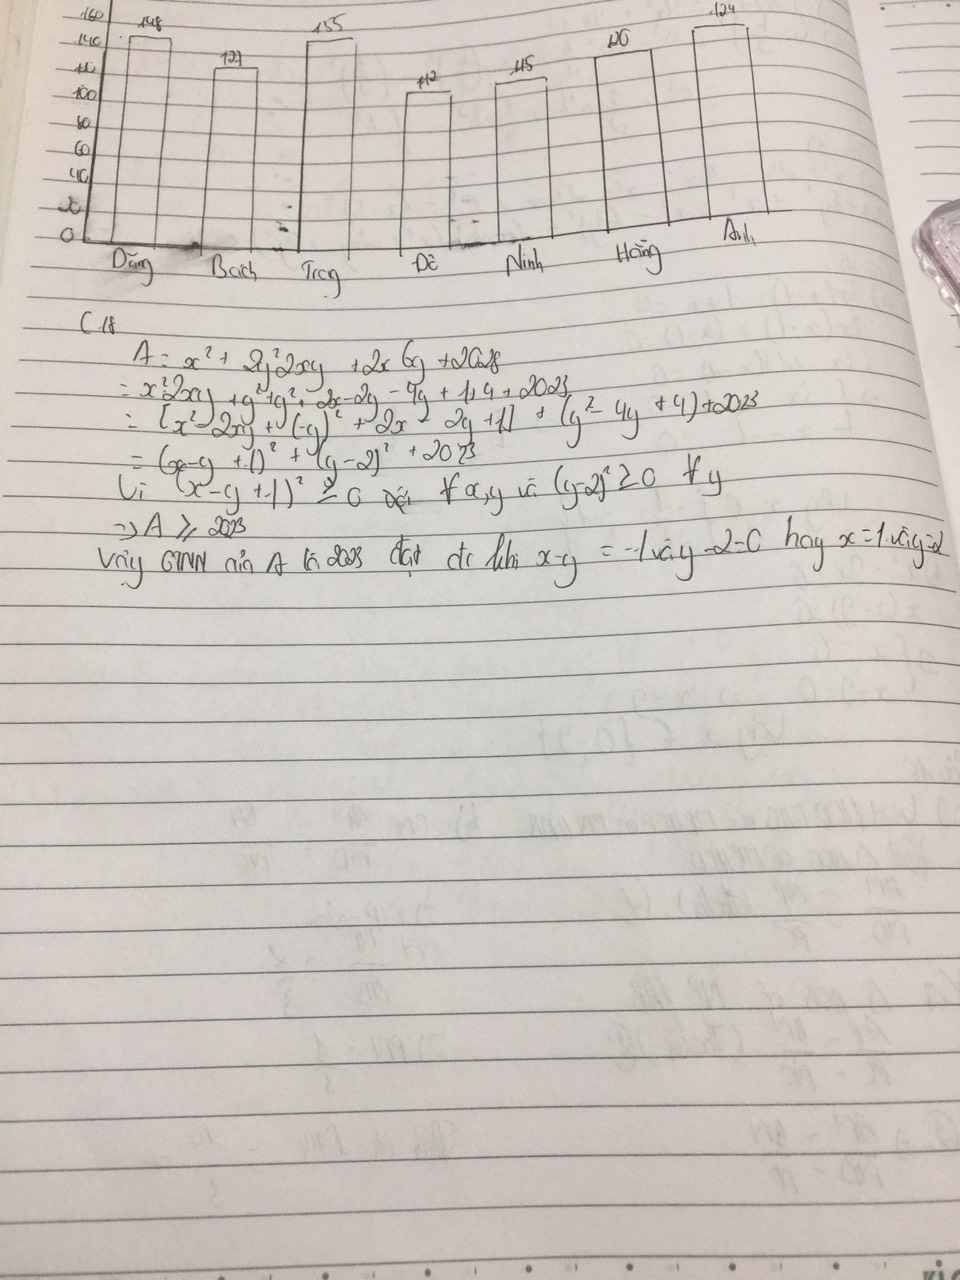 160 148 155 124
140 127 112 115 126
120
100
80
60
40
20
0
Dũng Bách Trang Đê Ninh Hoàng Anh
C18
A = x² + 2y² 2xy + 2x 6y + 2028
= x² 2xy + y² + y² + 2x - 2y - 4y + 1, 4 + 2023
= [x² - 2xy + (-y)² + 2x - 2y + 1] + (y² - 4y + 4) + 2023
= (x - y + 1)² + (y - 2)² + 2023
Vì (x - y + 1)² ≥ 0 với ∀ x,y và (y-2)² ≥ 0 ∀ y
=> A ≥ 2023
Vậy GTNN của A là 2023 đạt đc khi x-y = -1 và y - 2 = 0 hay x = 1 và y = 2